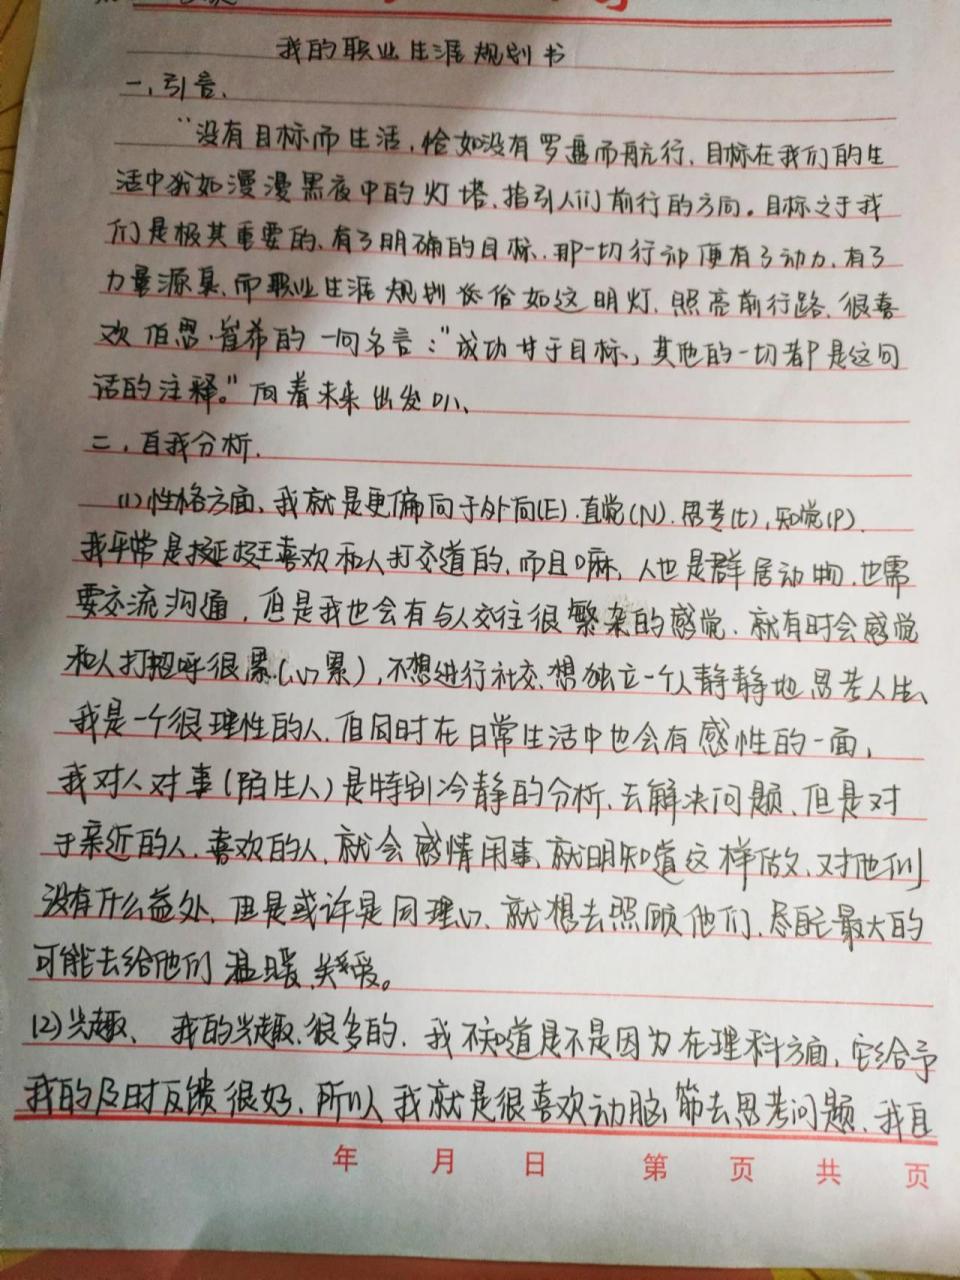 我的职业生涯规划书
一、引言、
“没有目标而生活，恰如没有罗盘而航行，目标在我们的生
活中犹如漫漫黑夜中的灯塔、指引人们前行的方向。目标之于我
们是极其重要的、有了明确的目标、那一切行动便有了动力、有了
力量源泉、而职业生涯规划恰如这明灯、照亮前行路、很喜
欢伯恩·崔希的一句名言：“成功廿于目标、其他的一切都是这句
话的注释。”向着未来出发叭、
二、自我分析.
(1)性格方面、我就是更偏向于外向(E).直觉(N).思考(t),知觉(P).
我平常是挺喜欢和人打交道的、而且嘛，人也是群居动物、也需
要交流沟通，但是我也会有与人交往很繁杂的感觉、就有时会感觉
和人打招呼很累(心累)，不想进行社交、想独立一个人静静地思考人生、
我是一个很理性的人、但同时在日常生活中也会有感性的一面，
我对人对事(陌生人)是特别冷静的分析、去解决问题、但是对
于亲近的人、喜欢的人、就会感情用事、就明知道这样做、对他们
没有什么益处、但是或许是同理心、就想去照顾他们、尽自己最大的
可能去给他们温暖、关爱。
(2)兴趣、我的兴趣、很多的、我不知道是不是因为在理科方面、它给予
我的及时反馈很好、所以我就是很喜欢动脑筋去思考问题、我自
年 月 日 第 页 共 页